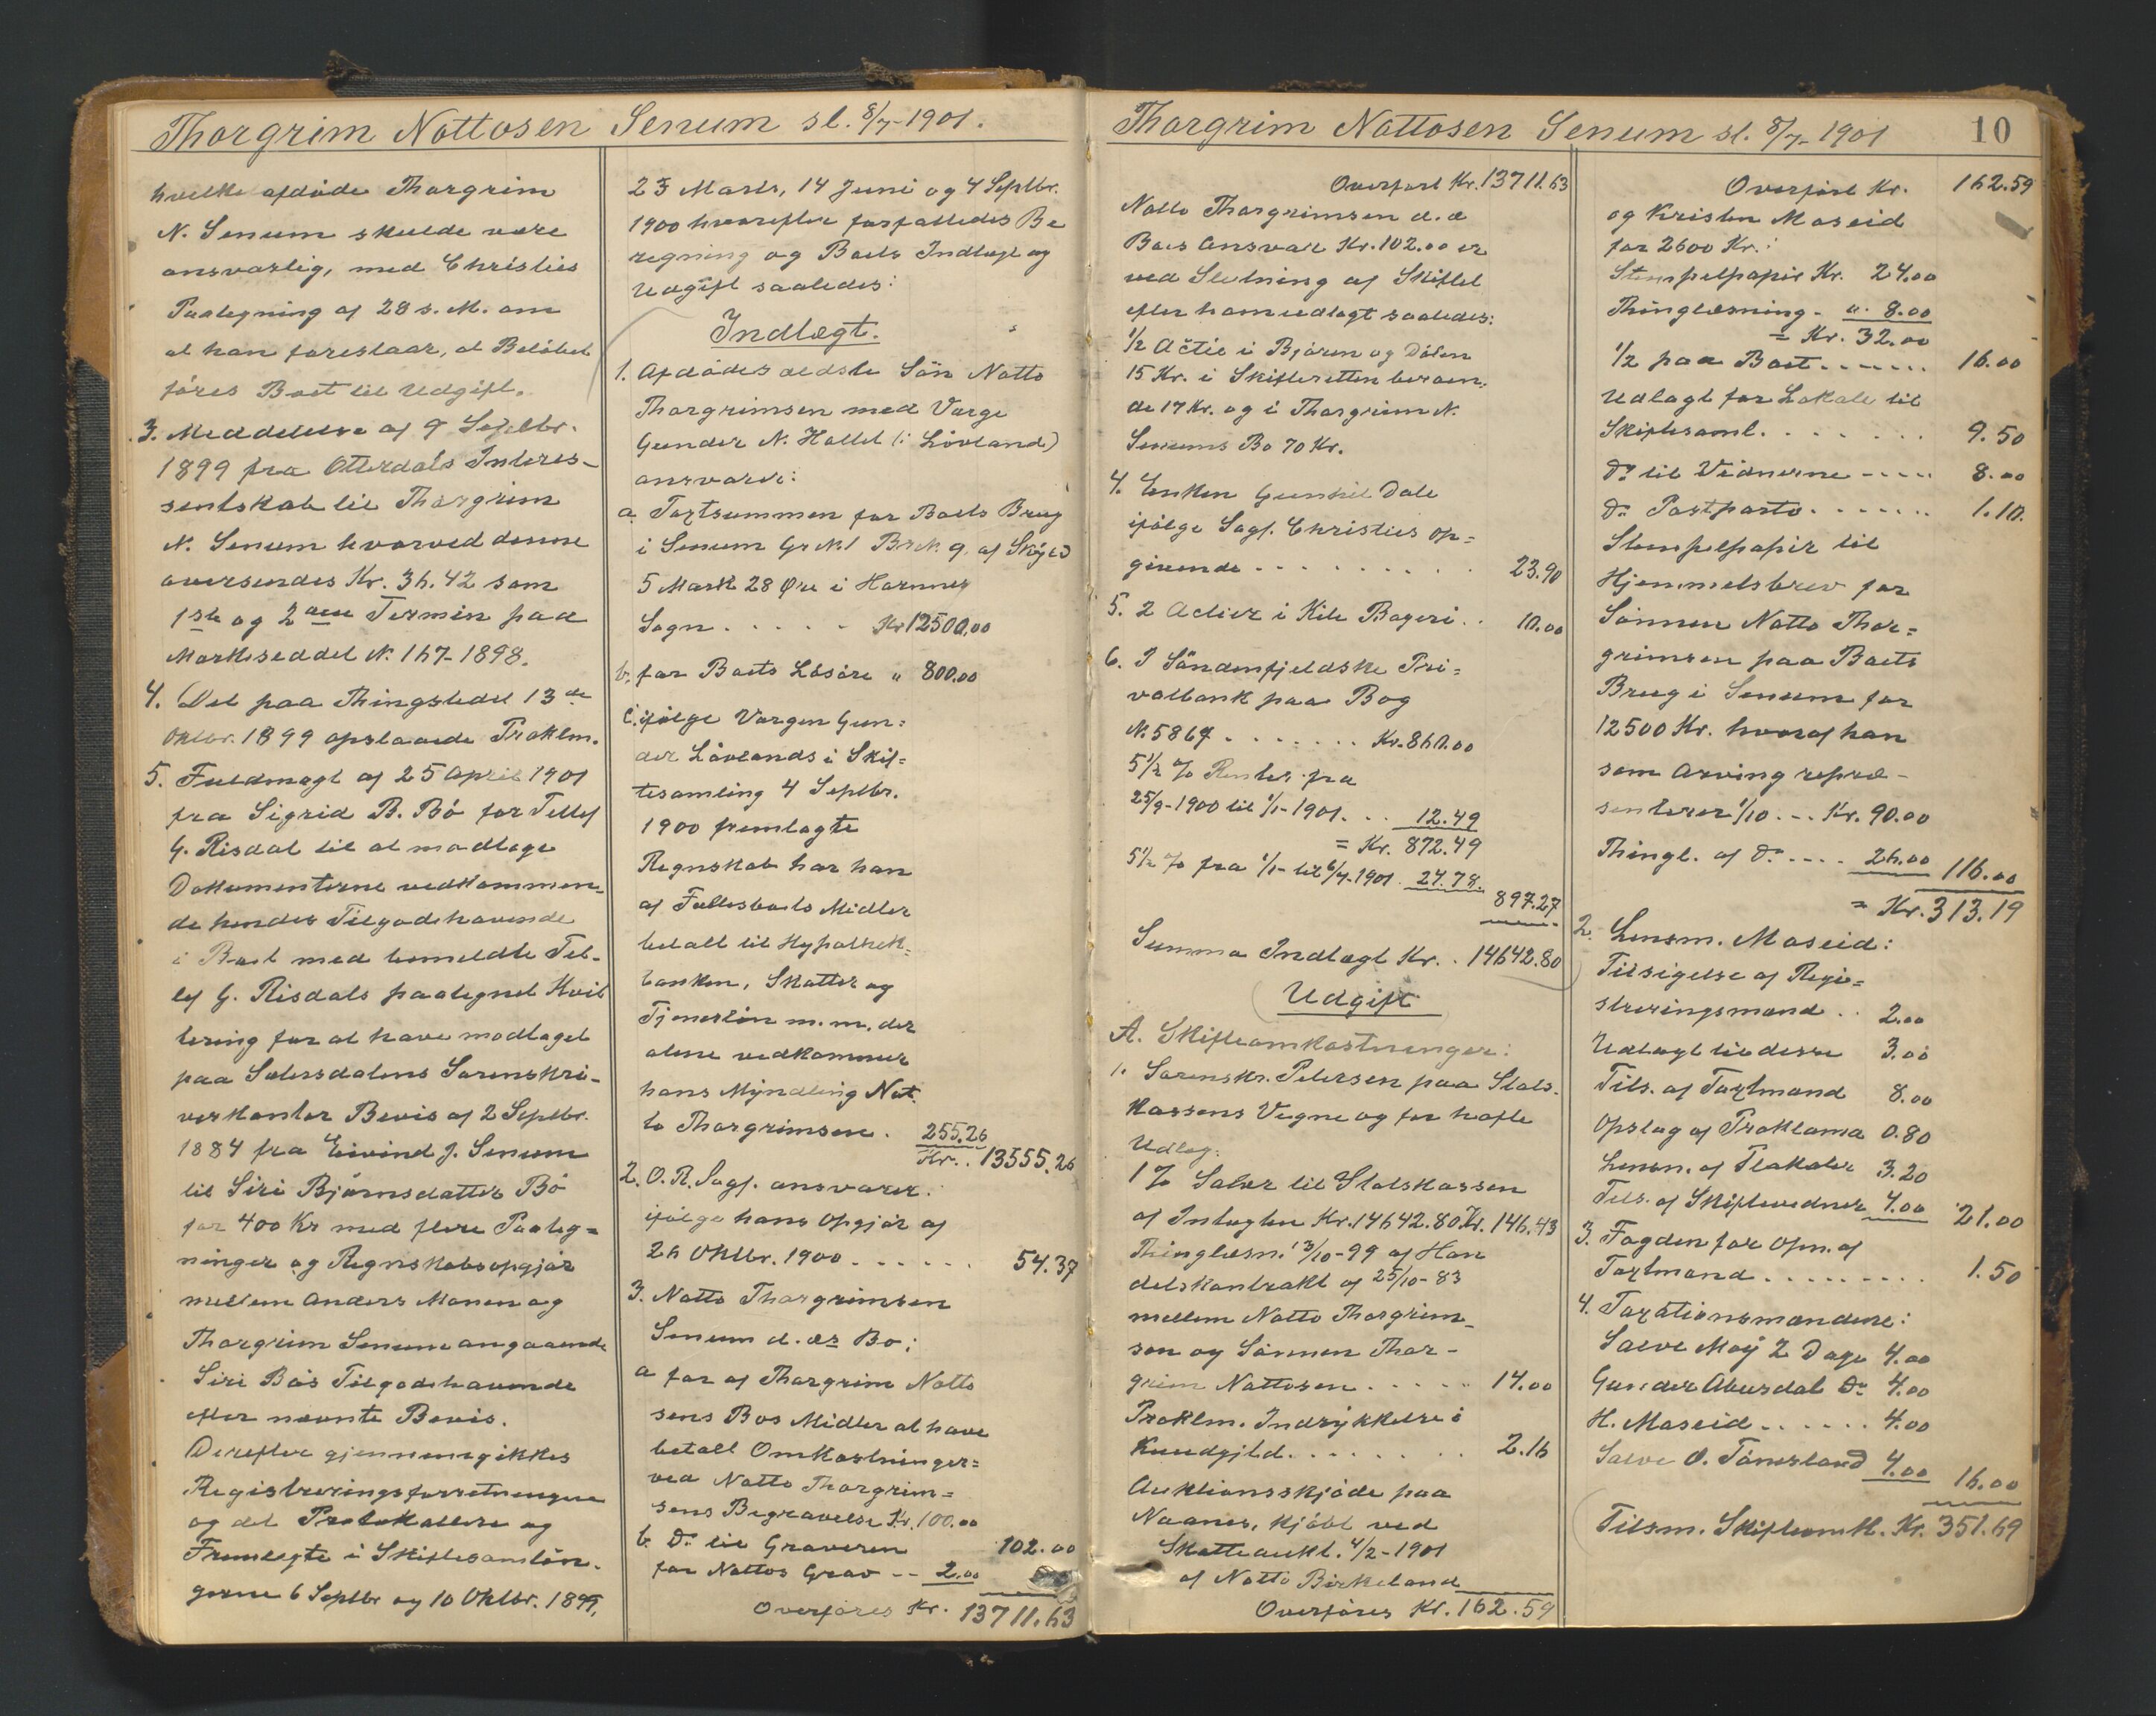 Thorgrim Nottosen Senum sl. 8/7-1901.
hvilke afdøde Thorgrim
N. Senum skulde være
ansvarlig, med Christies
Paategning af 28 s. M. om
at han foreslaar, at Beløbet
føres Boet til Udgift.
3. Meddelelse af 9 Septbr.
1899 fra Otterdals Interes-
sentskab til Thorgrim
N. Senum hvorved denne
oversendes Kr. 36.42 som
1ste og 2den Termin paa
Markseddel N. 167-1898.
4. Det paa Thingstedet 13de
Oktbr. 1899 opslaaede Proklm.
5. Fuldmagt af 25 April 1901
fra Sigrid B. Bö for Tellef
G. Risdal til at modtage
Dokumenterne vedkommen-
de hendes Tilgodehavende
i Boet med bemeldte Tel-
lef G. Risdals paategnet Kvit
tering for at have modtaget
paa Sætersdalens Sorenskri-
verkontor Bevis af 2 Septbr.
1884 fra Eivind J. Senum
til Siri Bjørnsdatter Bö
for 400 Kr med flere Paateg=
ninger og Regnskabsopgjør
mellem Anders Monen og
Thorgrim Senum angaaende
Siri Bös Tilgodehavende
efter nævnte Bevis.
Derefter gjennemgikkes
Registreringsforretningen
og det Protokollere og
Fremlagte i Skiftesamlin-
gerne 6 Septbr og 10 Oktbr. 1899,
23 Marts, 14 Juni og 4 Septbr.
1900 hvorefter forfattedes Be
regning og Boets Indtægt og
Udgift saaledes:
Indtægt.
1. Afdødes ældste Søn Notto
Thorgrimsen med Værge
Gunder N. Hallet (: Lövland)
ansvarer:
a. Taxtsummen for Boets Brug
i Senum Gr N. 1 Br N. 9. af Skyld
5 Mark 28 Øre i Hornnes
Sogn . . . . . Kr 12500.00
b. for Boets Løsøre " 800.00
c. ifølge Værgen Gun=
der Lövlands i Skif=
tesamling 4 Septbr.
1900 fremlagte
Regnskab har han
af Fællesboets Midler
betalt til Hypothek=
banken, Skatter og
Tjenerløn m.m. der
alene vedkommer
hans Myndling Not=
to Thorgrimsen . 255.26
Kr. . 13555.26
2. O.R.Sagf. ansvarer:
ifølge hans Opgjør af
26 Oktbr. 1900 . . . . . . 54.37
3. Notto Thorgrimsen
Senum d. æs Bo:
a for af Thorgrim Notto
sens Bos Midler at have
betalt Omkostninger=
ved Notto Thorgrim=
sens Begravelse Kr. 100.00
b. Do til Graveren
for Nottos Grav -- 2.00 102.00
Overføres Kr. 13711.63
Thorgrim Nottosen Senum sl. 8/7-1901
10
Overført Kr. 13711.63
Notto Thorgrimsen d. æ
Boes Ansvar Kr. 102.00 er
ved Slutning af Skiftet
efter ham udlagt saaledes:
1/2 Actie i Bjoren og Dölen
15 Kr. i Skifteretten beroen-
de 17 Kr. og i Thorgrim N.
Senums Bo 70 Kr.
4. Enken Gunhil Dale
ifølge Sagf. Christies Op=
givende . . . . . . . . . 23.90
5. 2 Actier i Kile Bageri . . 10.00
6. I Søndenfjeldske Pri=
vatbank paa Bog
N. 5867 . . . . . . . Kr. 860.00
5 1/2 % Renter fra
25/9-1900 til 1/1-1901. . . 12.49
= Kr. 872.49
5 1/2 % fra 1/1- til 6/7-1901 24.78.
897.27
Summa Indtægt Kr. . 14642.80
Udgift
A. Skifteomkostninger:
1. Sorenskr. Petersen paa Stats-
kassens Vegne og for hafte
Udlæg:
1 % Salær til Statskassen
af Indtægten Kr. 14642.80 Kr. 146.43
Thinglæsn. 13/10-99 af Han
delskontrakt af 25/10-83
mellem Notto Thorgrim-
sen og Sønnen Thor-
grim Nottosen . . . . . 14.00
Proklm. Indrykkelse i
Kundgjtd. . . . . . . . 2.16
Auktionsskjøde paa
Naanes, kjøbt ved
Skatteaukt. 4/2-1901
af Notto Birkeland
Overføres Kr. 162.59
Overført Kr. 162.59
og Kristen Moseid
for 2600 Kr.:
Stempelpapir Kr. 24.00
Thinglæsning - " 8.00
= Kr. 32.00
1/2 paa Boet . . . . . . . 16.00
Udlagt for Lokale til
Skiftesaml. . . . . . . . 9.50
Do til Vidnerne - - - - 8.00
Do Postporto . . . . . . . 1.10.
Stempelpapir til
Hjemmelsbrev for
Sønnen Notto Thor=
grimsen paa Boets
Brug i Senum for
12500 Kr. hvoraf han
som Arving repræ-
senterer 1/10 . - . Kr. 90.00
Thingl. af Do . . . . 26.00 116.00
= Kr. 313.19
2. Lensm. Moseid:
Tilsigelse af Regi=
streringsmænd . . 2.00
Udlagt til disse 3.00
Tils. af Taxtmænd 8.00
Opslag af Proklama 0.80
Lensm. af Plakater 3.20
Tils. af Skiftevidner 4.00 21.00
3. Fogden for Opn. af
Taxtmænd . . . . . . . . . 1.50
4. Taxationsmændene:
Salve Moij 2 Dage 4.00
Gunder Abusdal Do 4.00
H. Moseid . . . . . . 4.00
Salve O. Tønesland 4.00 16.00
Tilsm. Skifteomk. Kr. 351.69